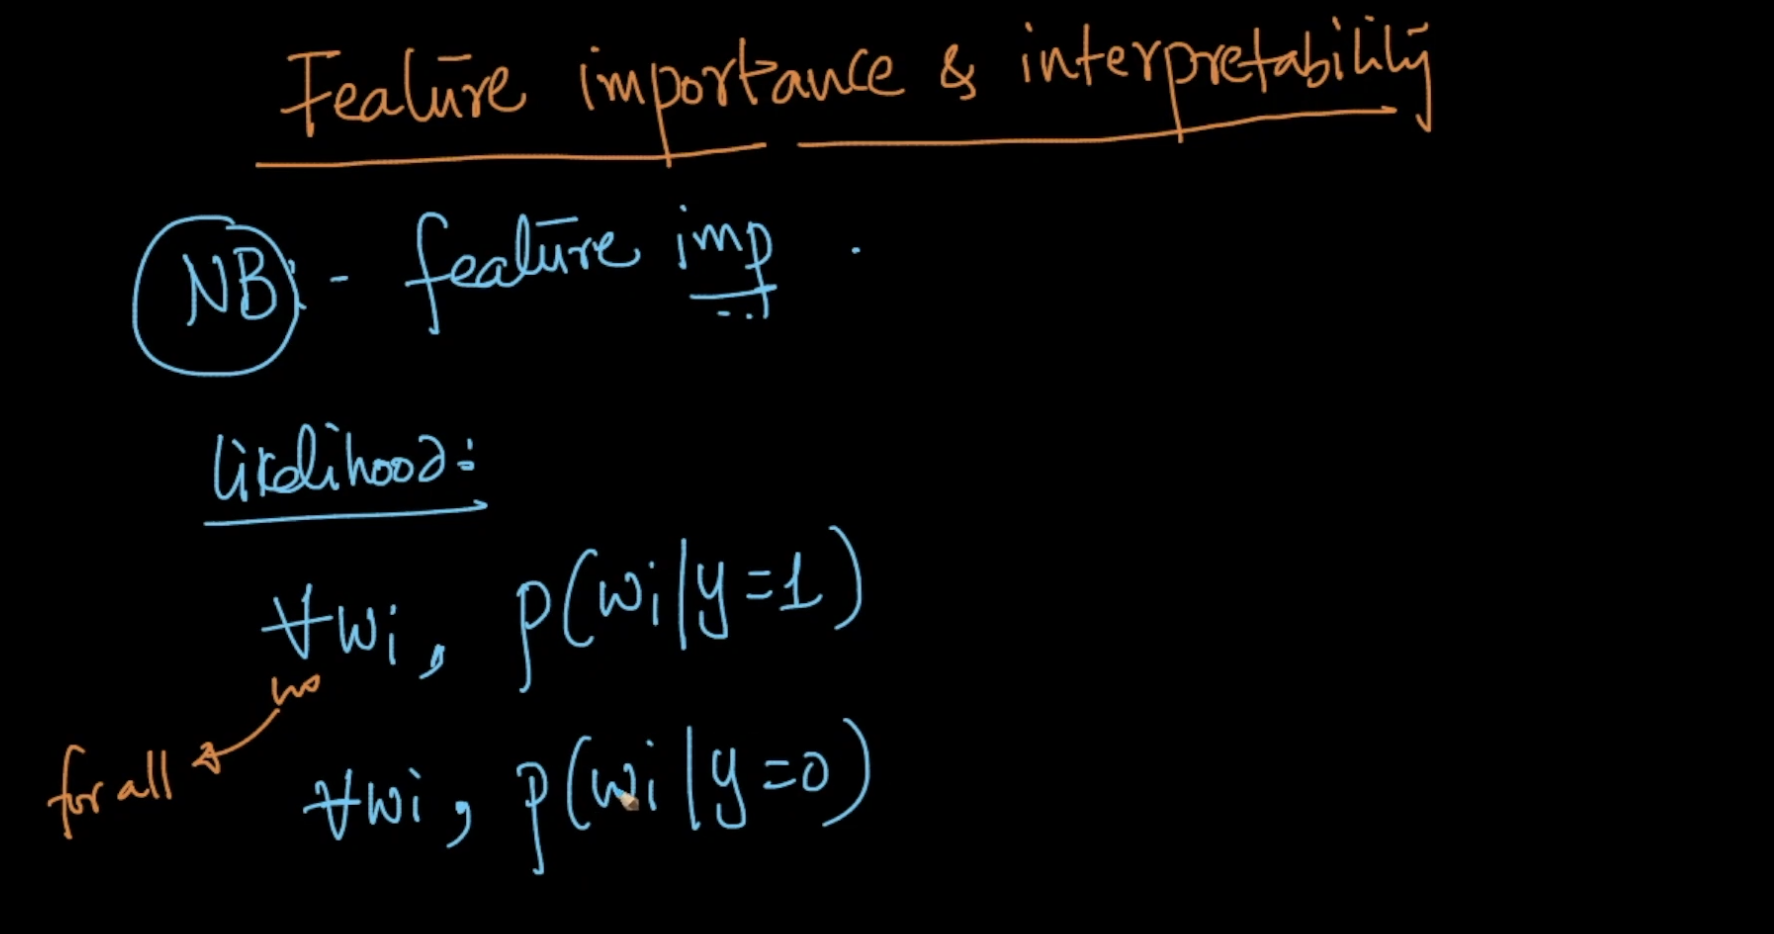 Feature importance & interpretability
NB:- feature imp .
likelihood:
∀wi, P(wi|y=1)
for all
∀wi, P(wi|y=0)